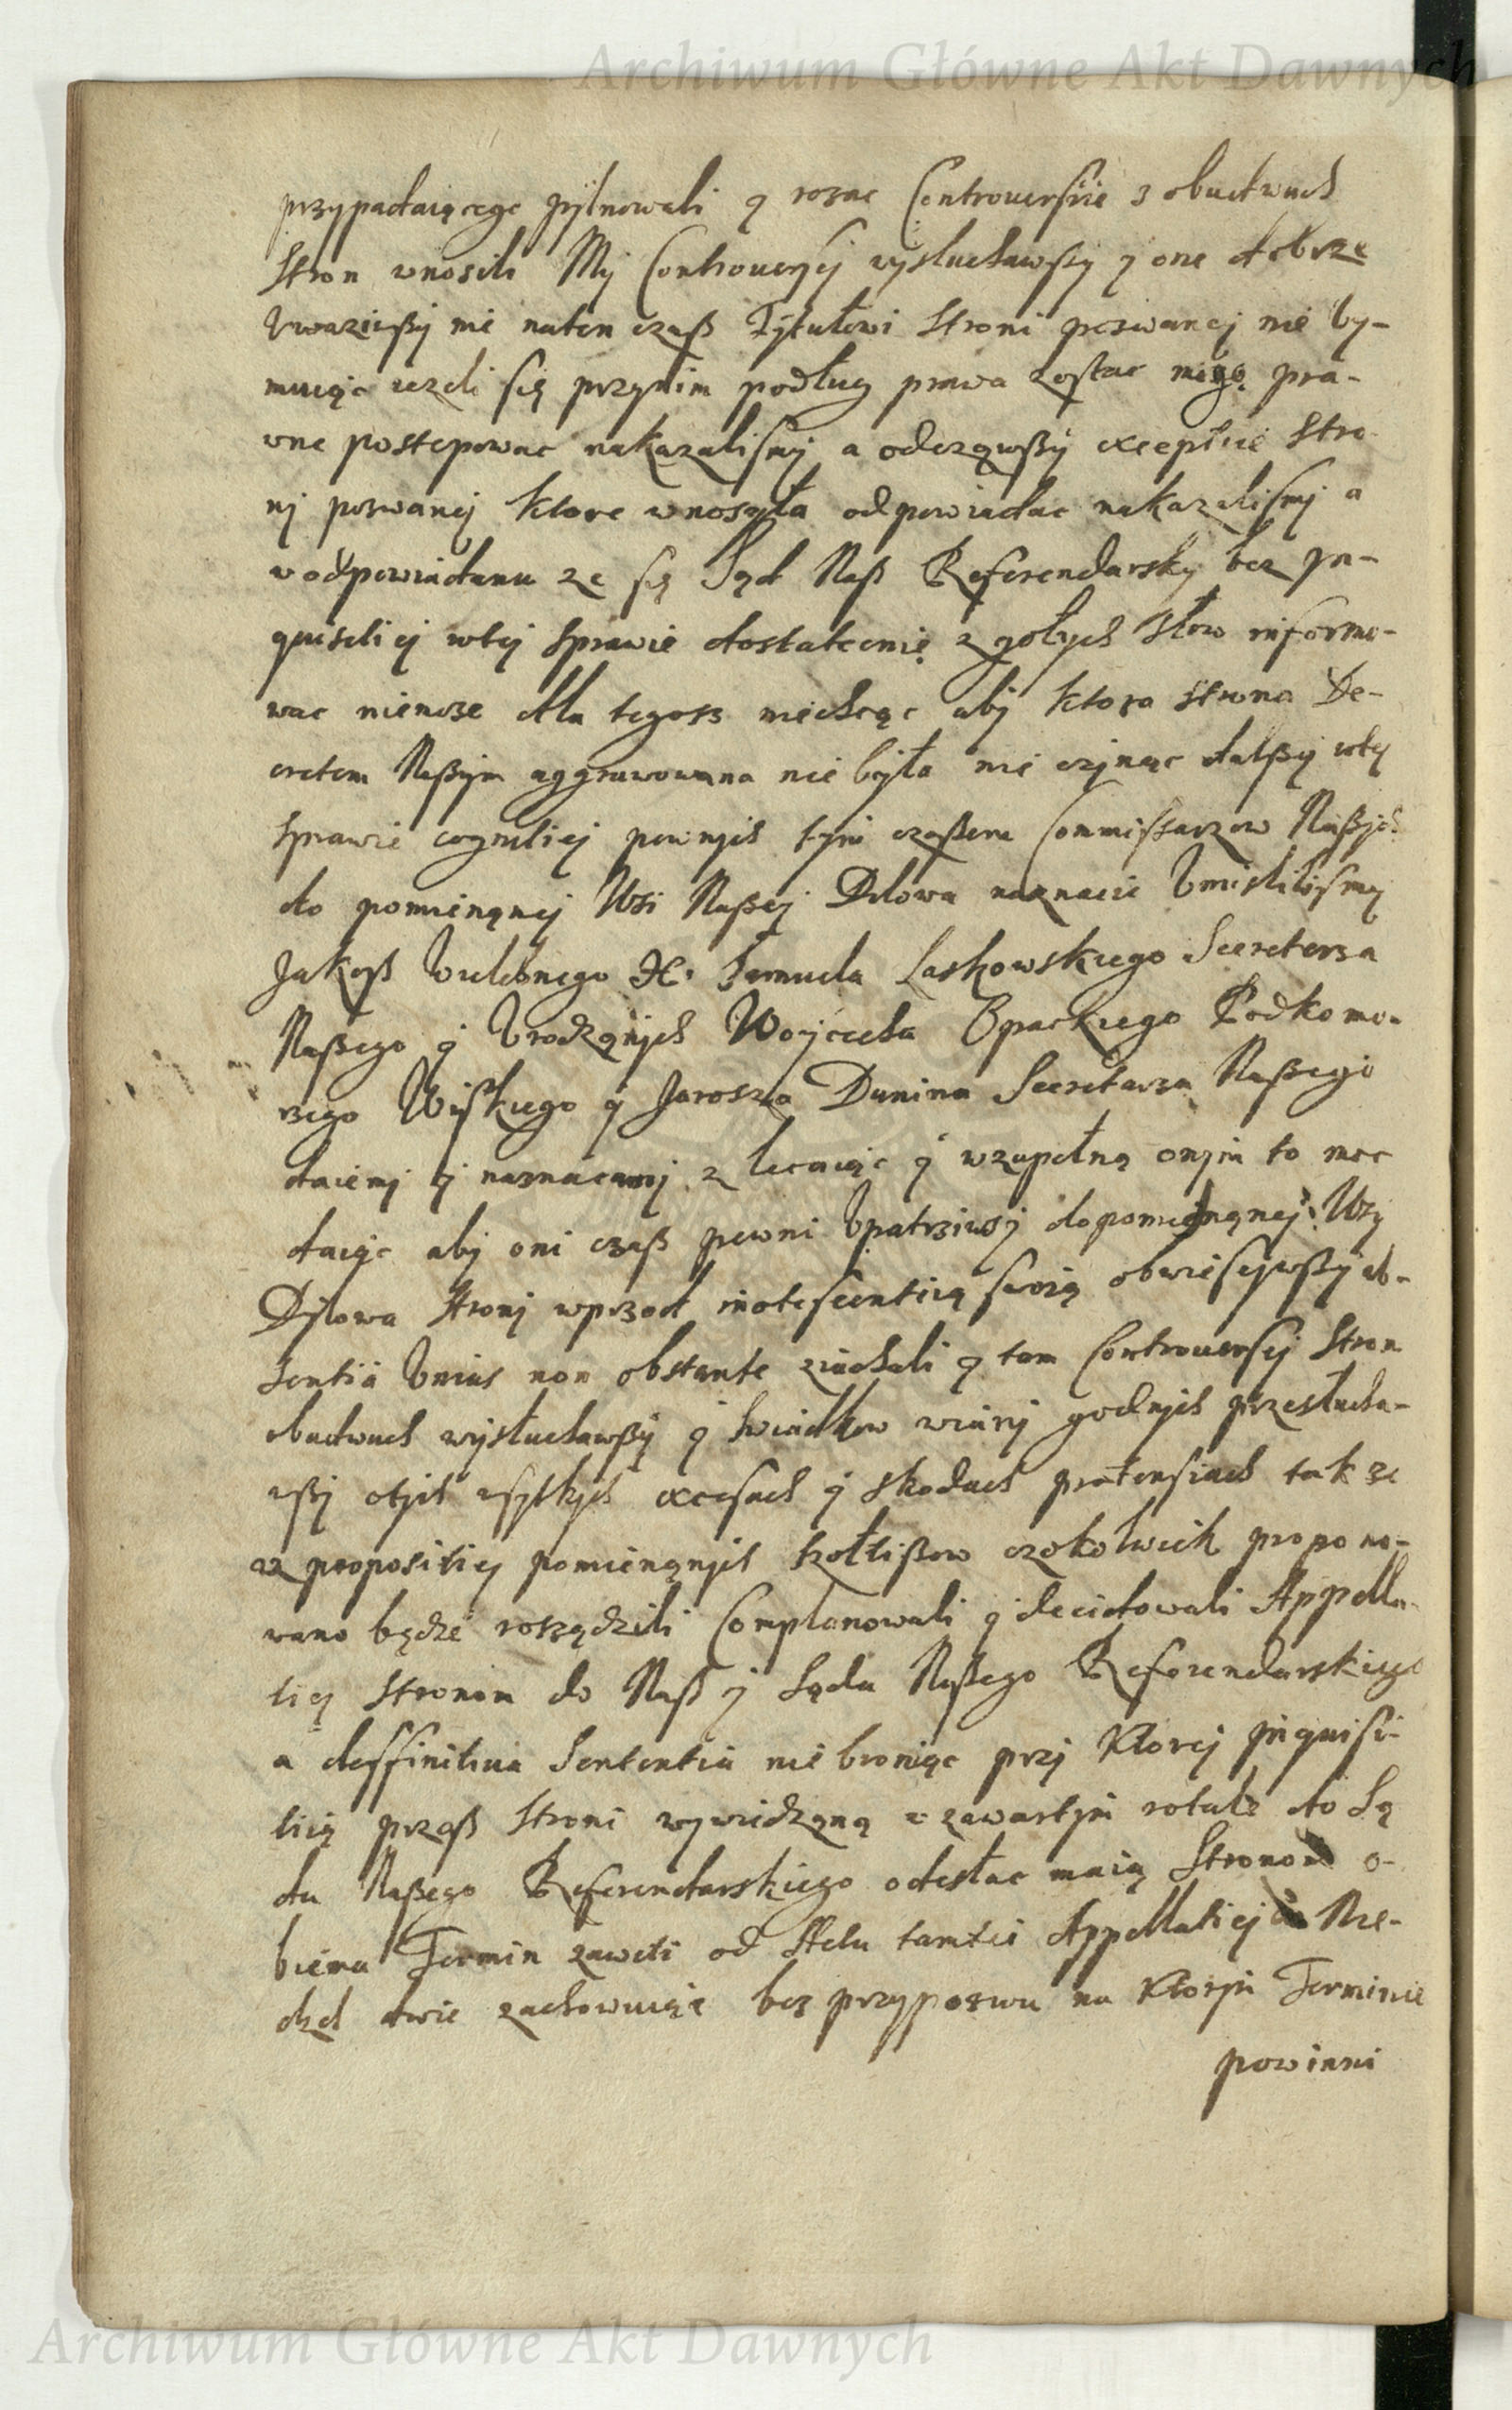 Archiwum Główne Akt Dawnych
przypadaiącego pylnowali y rozne Controuersiie z obudwuch
Stron wnosili My Controuersyj wysłuchawszy y one dobrze
Vwaziwszy nie naten czasz Tytułowi Stroni pozwanej nie vy-
muiąc iezeli się przynim podług prawa zostac mogą pra-
wne postepowac nakazalismy a odcząwszy exceptie Stro-
ny pozwanej ktore wnosyła odpowiadac nakazalismy a
w odpowiadaniu ze się Sąd Nasz Referendarsky bez In-
quisitiej wtej Sprawie dostatecnie z gołych Słow informo-
wac niemoze dla tegosz niechcąc aby ktora strona De-
cretem Naszym aggrawowana nie była nie czyniąc dalszy wtey
Sprawie cognitiej pewnych tym czasem Commissarzow Naszych
do pomienąnej Wsi Naszej Dylowa naznacic Vmislilismy
Jakosz Wielebnego X. Samuela Laskowskiego Secretarza
Naszego y Vrodzonych Woyciecha Opackiego Podkomo-
rzego Wiskiego y Jarosza Dunina Secretarza Naszego
daiemy y naznacamy zlecaiąc y wzupełną onym to moc
daiąc aby oni czasz pewni Vpatrziwszy dopomienąnej Wsy
Dylowa Strony wprzod inotescentią swoią obwiesciwszy ab-
sentia Vnius non obstante ziachali y tam Controuersyj Stron
obudwuch wysłuchawszy y Swiadkow wiary godnych przesłucha-
wszy otych wszytkych excesach y skodach prætensiach tak ze
w propositiej pomienąnych Szołtiszow czokolwiek propono-
wano będzie rosządzili Complanowali y decidowali Appella-
tiej Stronom do Nasz y Sądu Naszego Referendarskiego
a deffinitiua Sententia nie broniąc przy ktorej Inquisi-
tiią przesz Stroni wywiedzoną w zawartym rotule do Są
du Naszego Referendarskiego odesłac maią Stronom o-
biema Termin zawiti od Aktu tamtei Appellatiej Nie-
dziel dwie zachowuiąc bez przypozwu na ktorym Terminie
powinni
Archiwum Główne Akt Dawnych